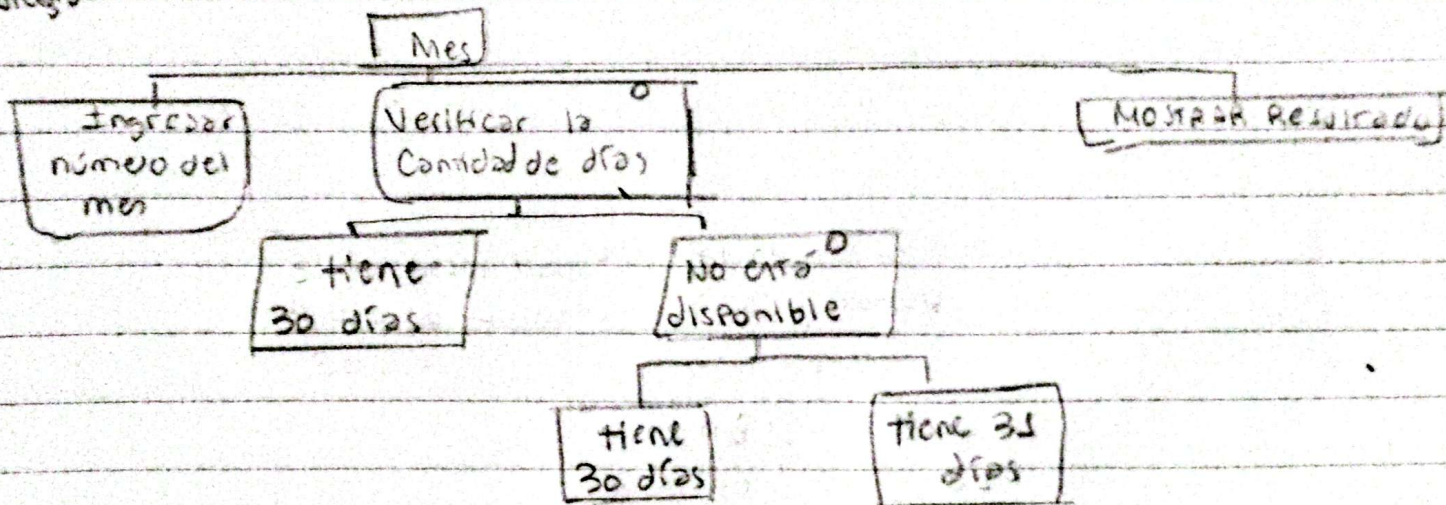 Mes
Ingresar
número del
mes
Verificar la
Cantidad de días
MOSTRAR Resultado
tiene
30 días
No está
disponible
tiene
30 días
tiene 31
días